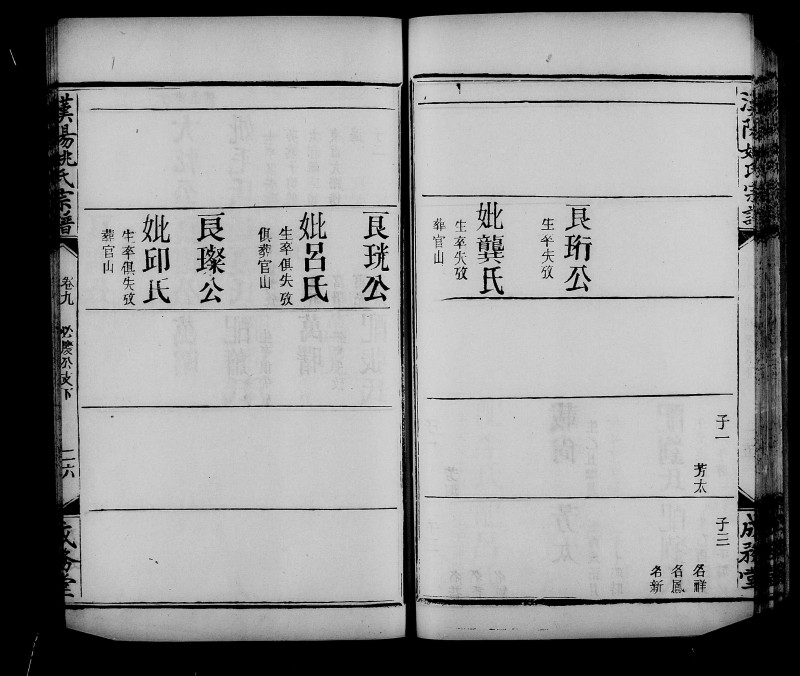 漢陽姚氏宗譜
成務堂
子一
芳太
子三
名祥
名鳳
名新
良珩公
生卒失攷
妣龔氏
生卒失攷
葬官山
良珖公
妣呂氏
生卒俱失攷
俱葬官山
良璨公
妣邱氏
生卒俱失攷
葬官山
漢陽姚氏宗譜
卷九
二六
成務堂